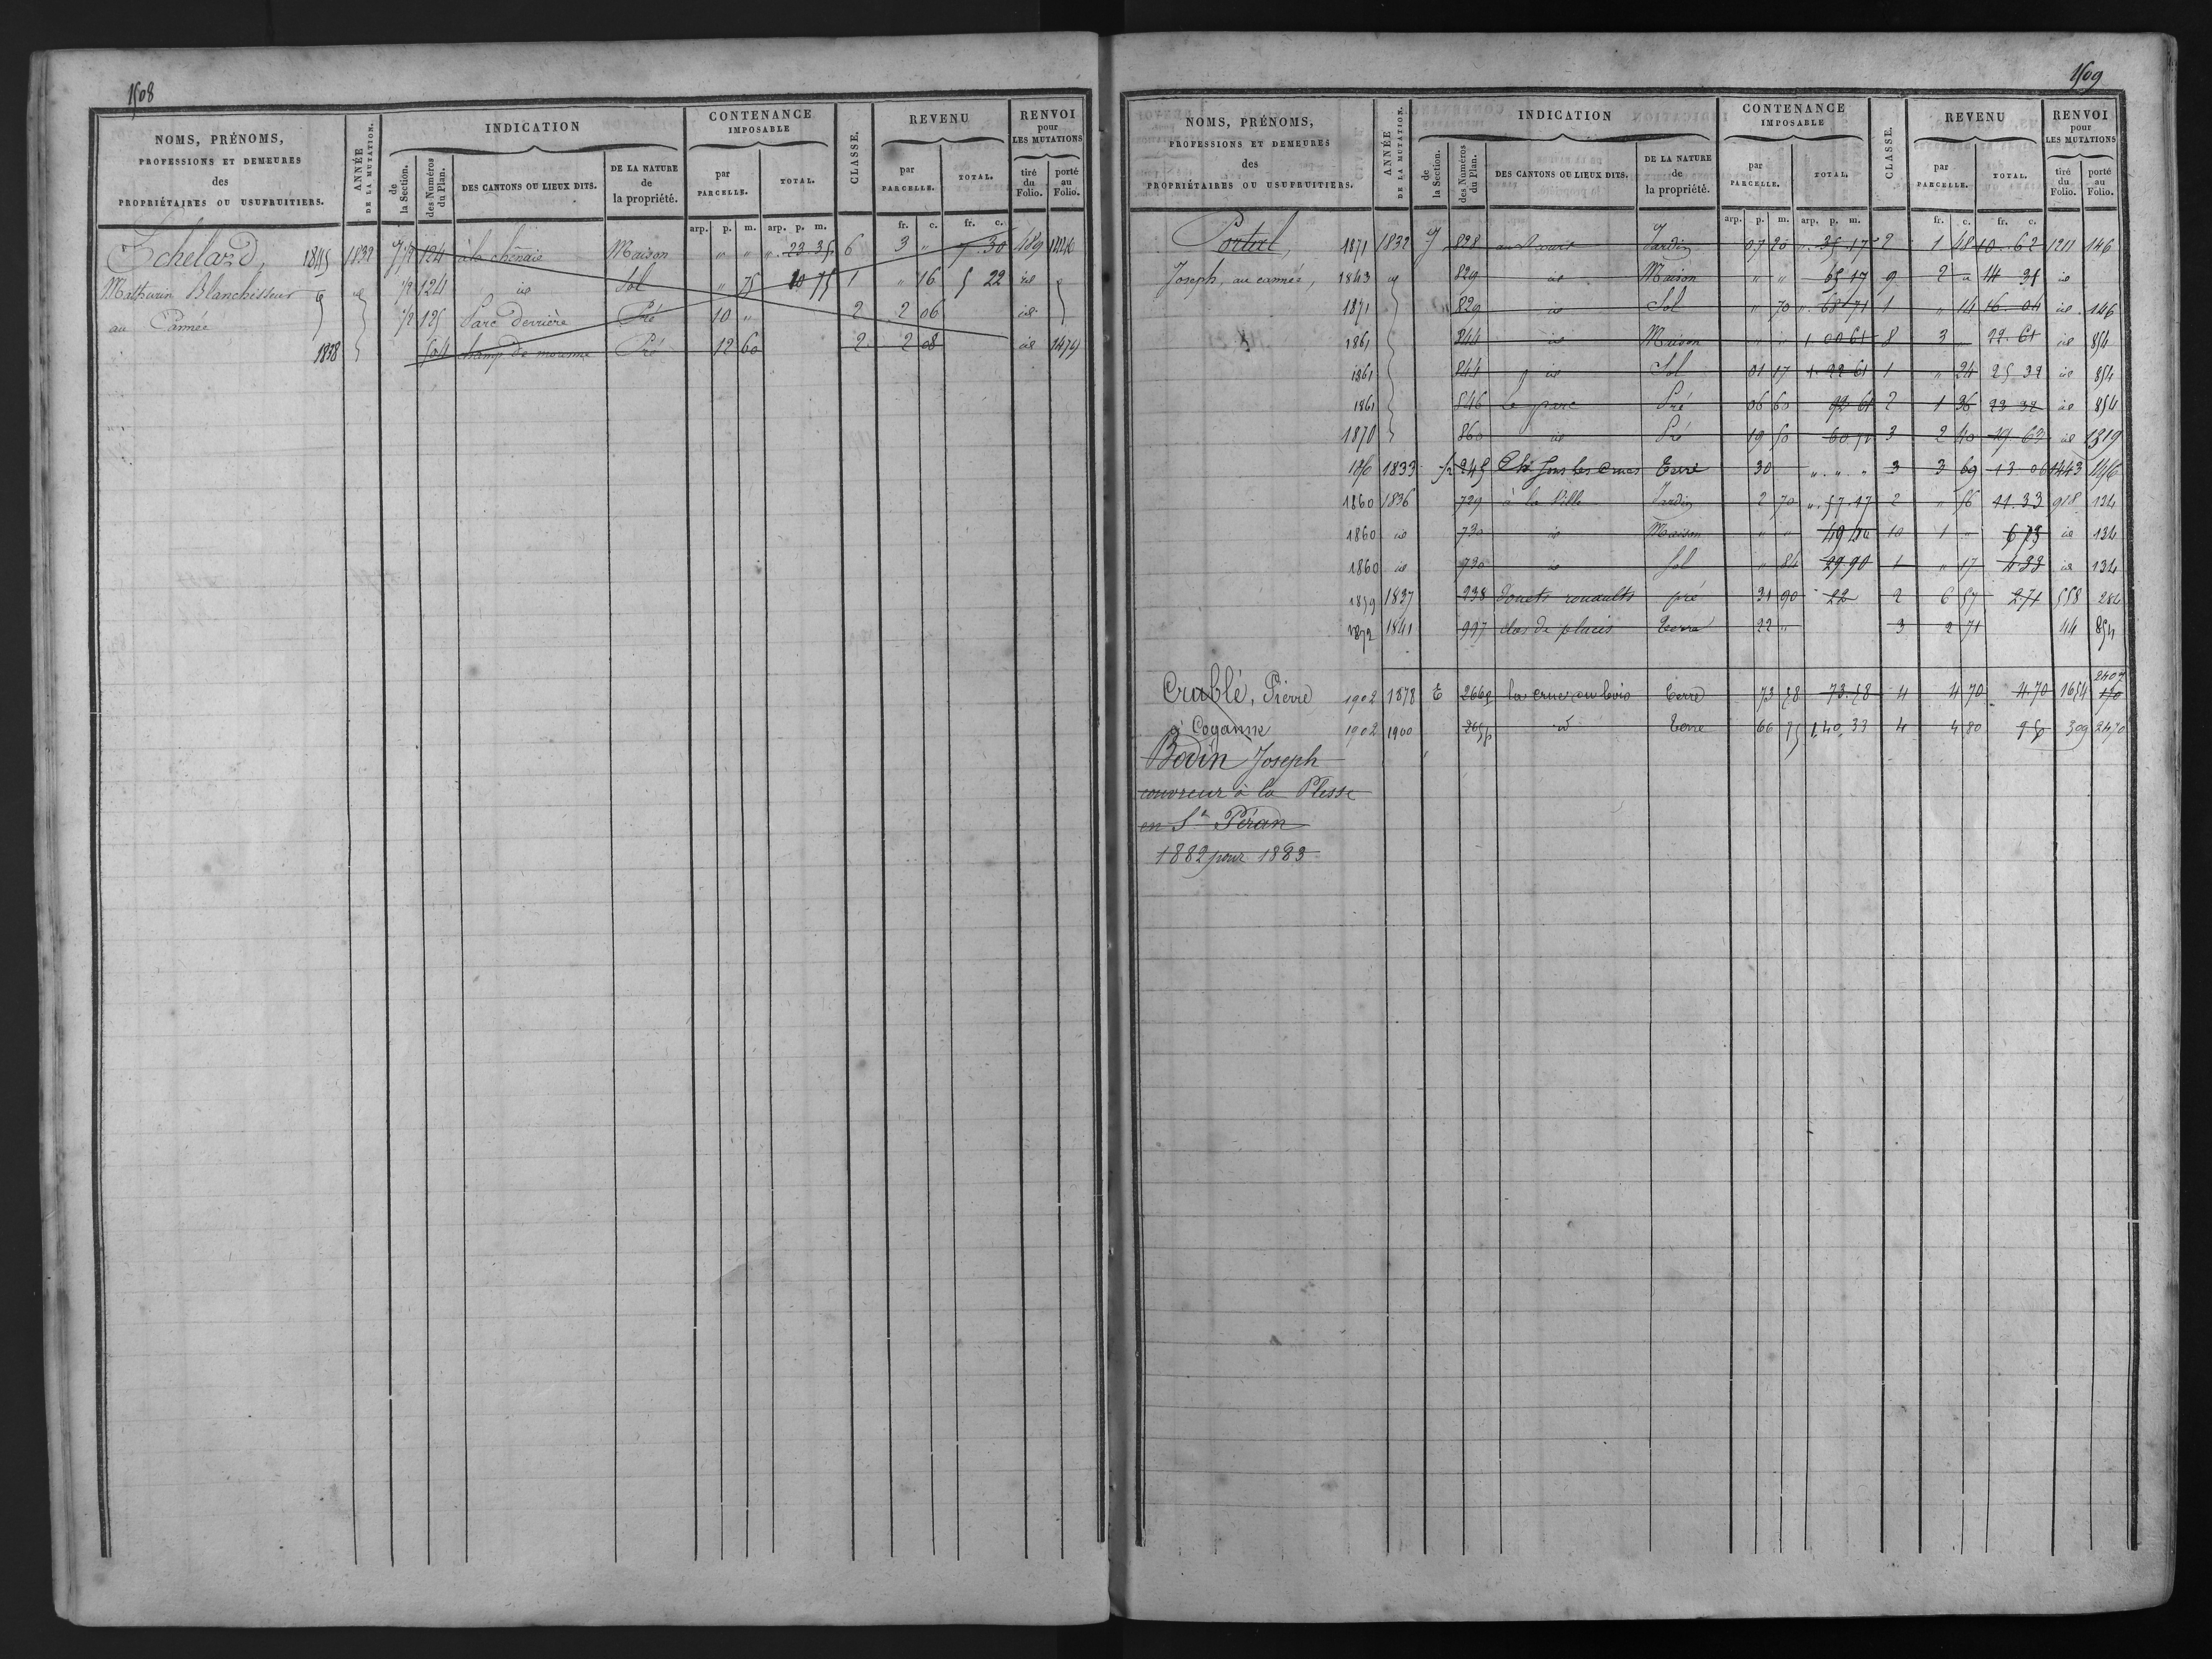 1508
NOMS, PRÉNOMS, PROFESSIONS ET DEMEURES des PROPRIÉTAIRES OU USUFRUITIERS.
ANNÉE DE LA MUTATION.
INDICATION
de la Section.
des Numéros du Plan.
DES CANTONS OU LIEUX DITS.
DE LA NATURE de la propriété.
CONTENANCE IMPOSABLE
par PARCELLE.
TOTAL.
CLASSE.
REVENU
par PARCELLE.
TOTAL.
RENVOI pour LES MUTATIONS
tiré du Folio.
porté au Folio.
arp. p. m. arp. p. m. fr. c. fr. c.
Echelard, 1845 1832 1/2 124 à la chênaie Maison " " ". 23 35 6 3 " 7 30 489
Mathurin Blanchisseur id 1/2 124 id Sol " 75 10 75 1 " 16 5 22 id
au Cannée 1/2 125 Parc derrière Pré 10 " 2 2 06 id
1838 504 champ de Pré 12 60 2 2 08 id 1479
1509
NOMS, PRÉNOMS, PROFESSIONS ET DEMEURES des PROPRIÉTAIRES OU USUFRUITIERS.
ANNÉE DE LA MUTATION.
INDICATION
de la Section.
des Numéros du Plan.
DES CANTONS OU LIEUX DITS.
DE LA NATURE de la propriété.
CONTENANCE IMPOSABLE
par PARCELLE.
TOTAL.
CLASSE.
REVENU
par PARCELLE.
TOTAL.
RENVOI pour LES MUTATIONS
tiré du Folio.
porté au Folio.
arp. p. m. arp. p. m. fr. c. fr. c.
Portuel, 1871 1832 J 828 Jardin 07 20 ". 35 17 2 1 48 10 62 1211 146
Joseph, au cannée, 1843 829 id Maison " " 65 17 9 2 " 14 31 id
1871 829 id Sol " 70 ". 68 71 1 " 14 16 04 id 146
1861 844 id Maison " " 1. 00 61 8 3 " 22 61 id 854
1861 844 id Sol 01 17 1. 22 61 1 " 24 25 32 id 854
1861 846 le parc Pré 06 60 92 61 2 1 36 23 32 id 854
1870 860 id Pré 19 50 60 3 2 40 19 63 id 1319
1833 1/2 245 Terre 30 ". ". " 3 3 69 13 06 1443
1860 1836 729 à la Ville Jardin 2 70 ". 57. 17 2 " 56 11. 33 918 134
1860 id 730 id Maison " " 10 1 " id 134
1860 id 730 id Sol " 84 29 90 1 " 17 id 134
1859 1837 238 Douets rouaults pré 31 90 22 2 6 57 2 71 558 284
1872 1841 997 clos de placis terre 22 " 3 2 71 44 854
2407
Crublé, Pierre 1902 1878 E la crue au bois terre 73 58 73. 58 4 4 70 4. 70 1654 170
à Coganne 1902 1900 id terre 66 75 1. 40. 33 4 4 80 309 2470
Bodin Joseph
couvreur à la Plesse
en St Péran
1882 pour 1883